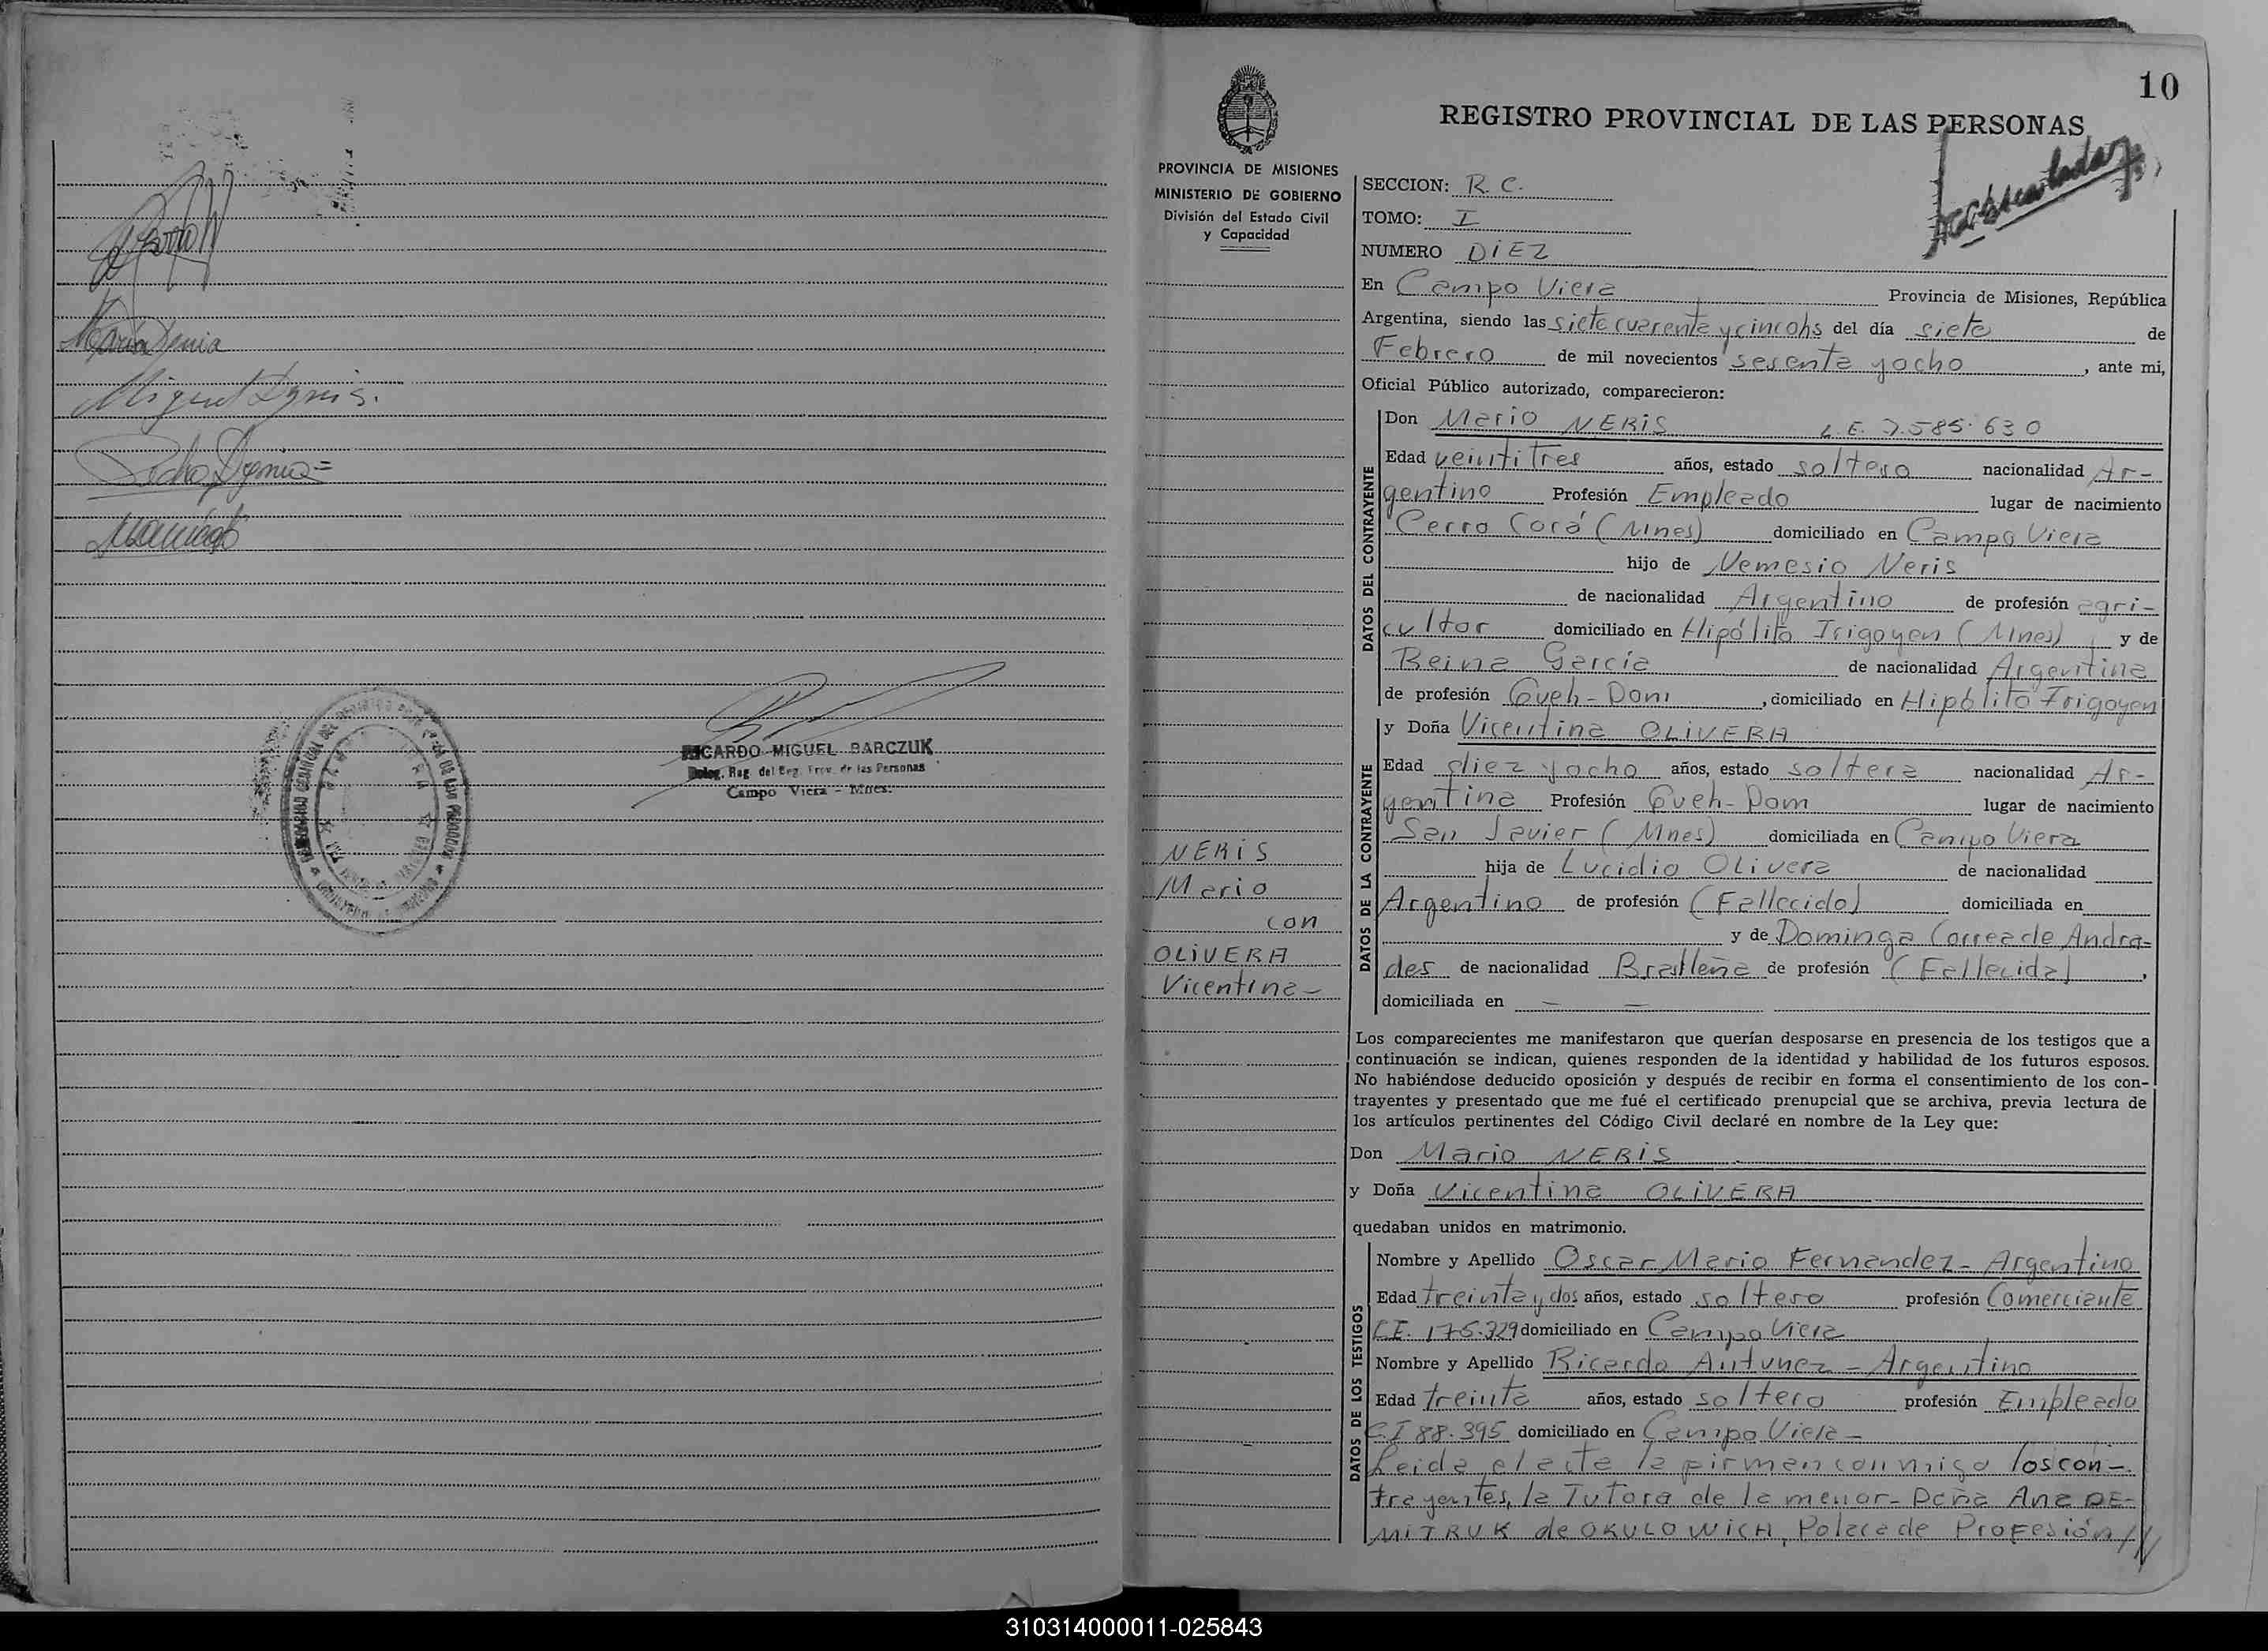 María Dynia
Miguel Dynia.
Pedro Dynia =
RICARDO MIGUEL BARCZUK
Deleg. Reg. del Reg. Prov. de las Personas
Campo Viera - Mnes.
10
REGISTRO PROVINCIAL DE LAS PERSONAS
PROVINCIA DE MISIONES
MINISTERIO DE GOBIERNO
División del Estado Civil
y Capacidad
SECCION: R. C.
TOMO: I
NUMERO DIEZ
En Campo Viera Provincia de Misiones, República
Argentina, siendo las siete cuarenta y cinco hs del día siete de
Febrero de mil novecientos sesenta y ocho, ante mi,
Oficial Público autorizado, comparecieron:
DATOS DEL CONTRAYENTE
Don Mario NERIS L.E. 7.585.630
Edad veintitres años, estado soltero nacionalidad Ar-
gentino Profesión Empleado lugar de nacimiento
Cerro Corá (Mnes) domiciliado en Campo Viera
hijo de Nemesio Neris
de nacionalidad Argentino de profesión agri-
cultor domiciliado en Hipólito Irigoyen (Mnes) y de
Reina García de nacionalidad Argentina
de profesión Queh-Dom, domiciliado en Hipólito Irigoyen
DATOS DE LA CONTRAYENTE
y Doña Vicentina OLIVERA
Edad diez y ocho años, estado soltera nacionalidad Ar-
gentina Profesión Queh-Dom lugar de nacimiento
San Javier (Mnes) domiciliada en Campo Viera
hija de Lucidio Olivera de nacionalidad
Argentino de profesión (Fallecido) domiciliada en
y de Dominga Correa de Andra=
des de nacionalidad Brasileña de profesión (Fallecida),
domiciliada en = =
NERIS
Mario
con
OLIVERA
Vicentina-
Los comparecientes me manifestaron que querían desposarse en presencia de los testigos que a
continuación se indican, quienes responden de la identidad y habilidad de los futuros esposos.
No habiéndose deducido oposición y después de recibir en forma el consentimiento de los con-
trayentes y presentado que me fué el certificado prenupcial que se archiva, previa lectura de
los artículos pertinentes del Código Civil declaré en nombre de la Ley que:
Don Mario NERIS
y Doña Vicentina OLIVERA
quedaban unidos en matrimonio.
DATOS DE LOS TESTIGOS
Nombre y Apellido Oscar Mario Fernandez- Argentino
Edad treinta y dos años, estado soltero profesión Comerciante
C.I. 175.329 domiciliado en Campo Viera
Nombre y Apellido Ricardo Antunez - Argentino
Edad treinta años, estado soltero profesión Empleado
C.I 88.395 domiciliado en Campo Viera -
Leida el acta la firman conmigo los con-
trayentes, la Tutora de la menor- Doña Ana DE-
MITRUK de OKULOWICH, Polaca de Profesión//
310314000011-025843